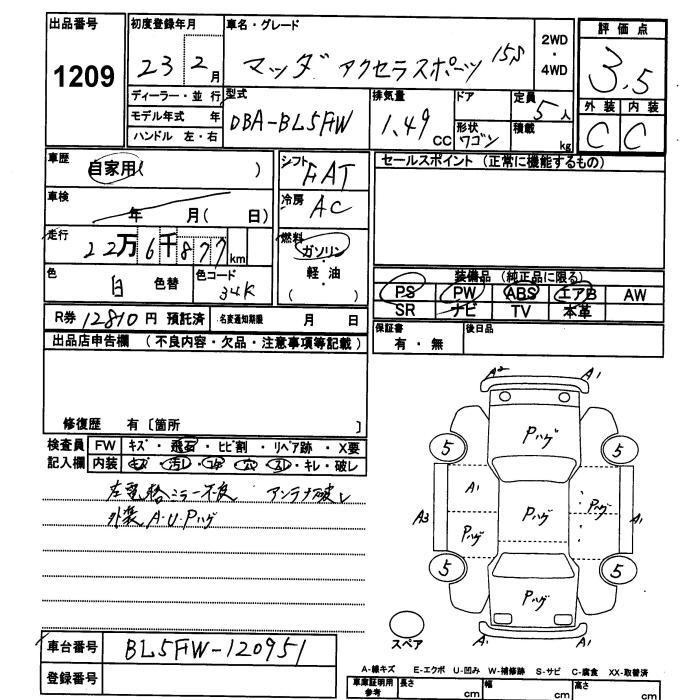 出品番号 1209
初度登録年月 23 2 月
車名・グレード マツダ アクセラスポーツ 15S
2WD・4WD
評価点 3.5
外装 C 内装 C
ディーラー・並行
モデル年式 年
ハンドル 左・右
型式 DBA-BL5FW
排気量 1.49 CC
ドア
形状 ワゴン
定員 5人
積載 kg
車歴 自家用( )
シフト FAT
セールスポイント (正常に機能するもの)
車検 年 月( 日)
冷房 AC
走行 22万6千877km
燃料 ガソリン・軽・油 ( )
色 白 色替
色コード 34K
装備品 (純正品に限る)
PS PW ABS エアB AW
SR ナビ TV 本革
R券 12810 円 預託済
名変通知期限 月 日
保証書 有・無
後日品
出品店申告欄 (不良内容・欠品・注意事項等記載)
修復歴 有〔箇所 〕
検査員記入欄
FW キズ・飛石・ヒビ割・リペア跡・X要
内装 キズ・汚レ・コゲ・穴・スレ・キレ・破レ
左電格ミラー不良 アンテナ破レ
外装 A・U・Pハゲ
A2 A1
Pハゲ
5 5
A1
A3 Pハゲ Pハゲ Pハゲ A1
5 5
Pハゲ
A1 A1
スペア
車台番号 BL5FW-120951
登録番号
A-線キズ E-エクボ U-凹み W-補修跡 S-サビ C-腐食 XX-取替済
車庫証明用参考 長さ cm 幅 cm 高さ cm